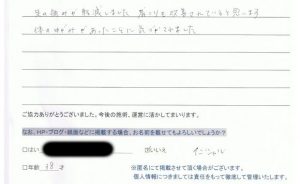 の痛みが軽減しました 肩こりも改善されていると思います
体のゆがみがあったことに気づかされました
ご協力ありがとうございました。今後の施術、運営に活かしてまいります。
なお、HP・ブログ・紙面などに掲載する場合、お名前を載せてもよろしいでしょうか?
□はい いいえ イニシャル
□年齢 38才 ※匿名にて掲載させて頂く場合がございます。
個人情報につきましては責任をもって徹底して管理いたします。